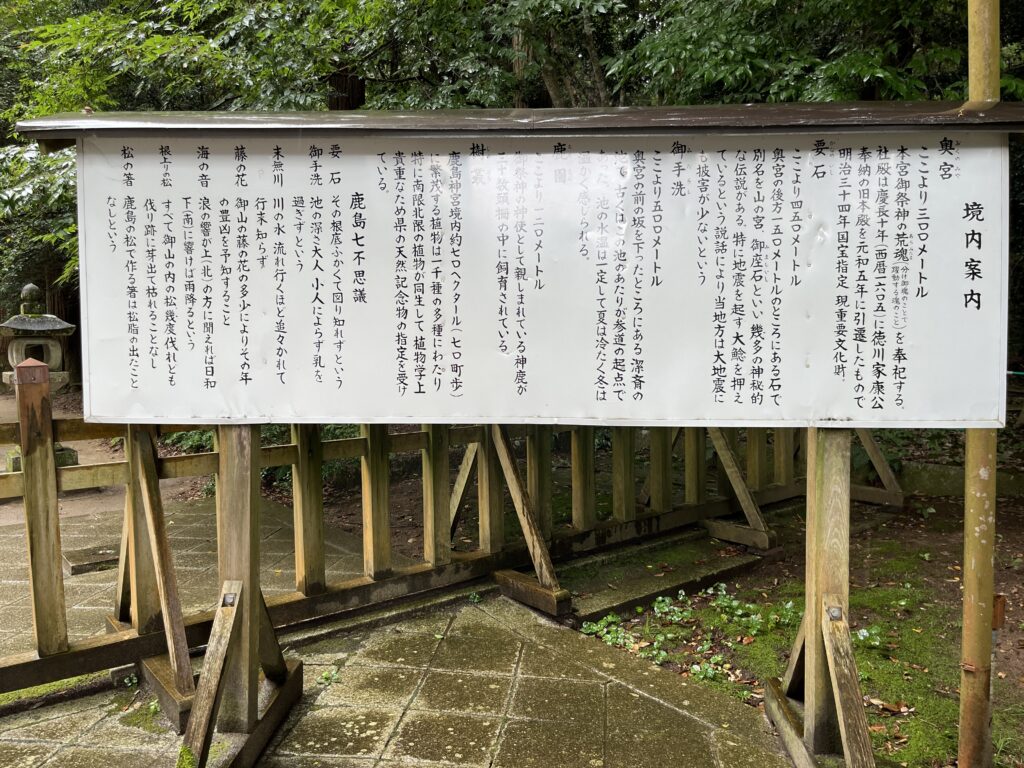 境内案内
奥宮
ここより三〇〇メートル
本宮御祭神の荒魂(分け御魂のことで躍動する魂のこと)を奉祀する。
社殿は慶長十年(西暦一六〇五)に徳川家康公
奉納の旧本殿を元和五年に引遷したもので
明治三十四年国宝指定 現重要文化財。
要石
ここより四五〇メートル
奥宮の後方一五〇メートルのところにある石で
別名を山の宮、御座石といい 幾多の神秘的
な伝説がある。特に地震を起す大鯰を押え
ているという説話により当地方は大地震に
も被害が少ないという
御手洗
ここより五〇〇メートル
奥宮の前の坂を下ったところにある 潔斎の
池で、古くはこの池のあたりが参道の起点で
あった。池の水温は一定して夏は冷たく冬は
温かく感じられる。
鹿園
ここより一二〇メートル
御祭神の神使として親しまれている神鹿が
三十数頭 柵の中に飼育されている。
樹叢
鹿島神宮境内約七〇ヘクタール(七〇町歩)
に繁茂する植物は一千種の多種にわたり
特に南限北限の植物が同生して、植物学上
貴重なため県の天然記念物の指定を受け
ている。
鹿島七不思議
要石 その根底ふかくて図り知れずという
御手洗 池の深さ大人 小人によらず乳を
過ぎずという
末無川 川の水 流れ行くほど追々かれて
行末知らず
藤の花 御山の藤の花の多少によりその年
の豊凶を予知すること
海の音 浪の響が上(北)の方に聞えれば日和
下(南)に響けば雨降るという
根上りの松 すべて御山の内の松幾度伐れども
伐り跡に芽出て枯れることなし
松の箸 鹿島の松で作る箸は松脂の出たこと
なしという